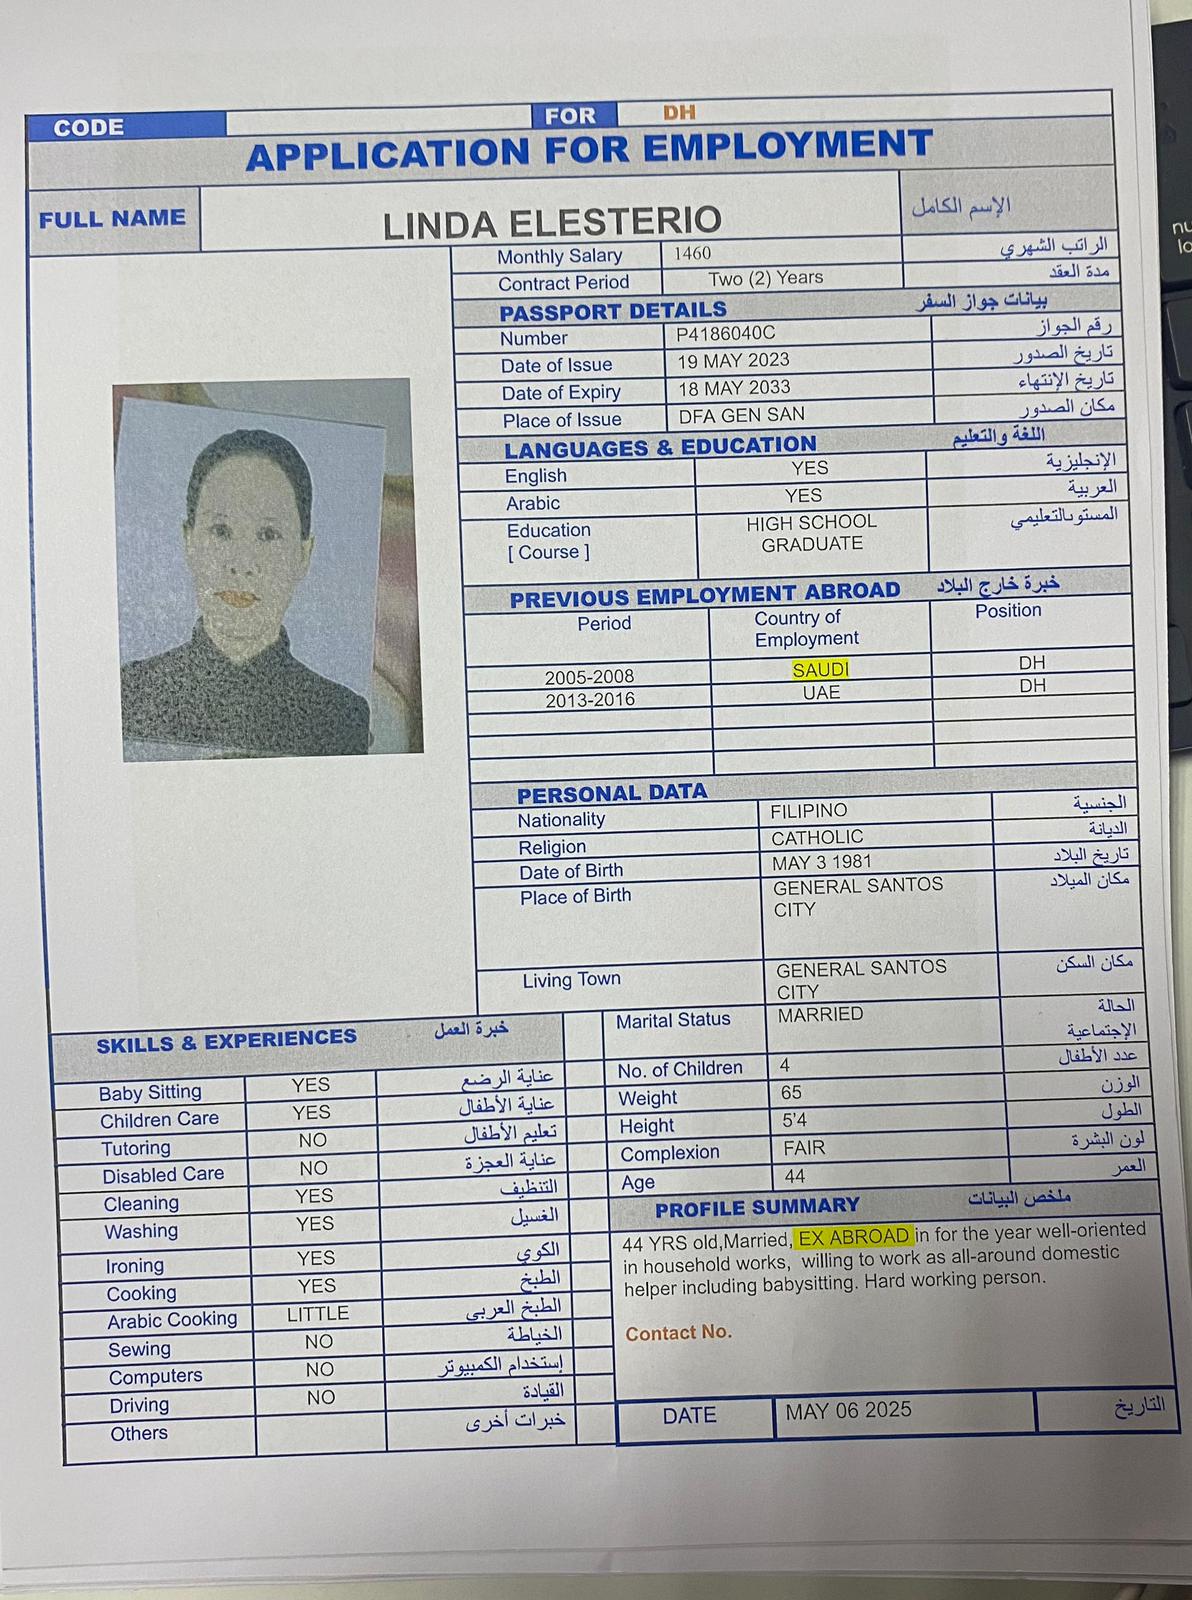 CODE FOR DH
APPLICATION FOR EMPLOYMENT
FULL NAME LINDA ELESTERIO الإسم الكامل
Monthly Salary 1460 الراتب الشهري
Contract Period Two (2) Years مدة العقد
PASSPORT DETAILS بيانات جواز السفر
Number P4186040C رقم الجواز
Date of Issue 19 MAY 2023 تاريخ الصدور
Date of Expiry 18 MAY 2033 تاريخ الإنتهاء
Place of Issue DFA GEN SAN مكان الصدور
LANGUAGES & EDUCATION اللغة والتعليم
English YES الإنجليزية
Arabic YES العربية
Education HIGH SCHOOL المستوىالتعليمي
[ Course ] GRADUATE
PREVIOUS EMPLOYMENT ABROAD خبرة خارج البلاد
Period Country of Position
Employment
2005-2008 SAUDI DH
2013-2016 UAE DH
PERSONAL DATA
Nationality FILIPINO الجنسية
Religion CATHOLIC الديانة
Date of Birth MAY 3 1981 تاريخ البلاد
Place of Birth GENERAL SANTOS مكان الميلاد
CITY
Living Town GENERAL SANTOS مكان السكن
CITY
Marital Status MARRIED الحالة
الإجتماعية
No. of Children 4 عدد الأطفال
Weight 65 الوزن
Height 5'4 الطول
Complexion FAIR لون البشرة
Age 44 العمر
SKILLS & EXPERIENCES خبرة العمل
Baby Sitting YES عناية الرضع
Children Care YES عناية الأطفال
Tutoring NO تعليم الأطفال
Disabled Care NO عناية العجزة
Cleaning YES التنظيف
Washing YES الغسيل
Ironing YES الكوي
Cooking YES الطبخ
Arabic Cooking LITTLE الطبخ العربي
Sewing NO الخياطة
Computers NO إستخدام الكمبيوتر
Driving NO القيادة
Others خبرات أخرى
PROFILE SUMMARY ملخص البيانات
44 YRS old,Married, EX ABROAD in for the year well-oriented
in household works, willing to work as all-around domestic
helper including babysitting. Hard working person.
Contact No.
DATE MAY 06 2025 التاريخ